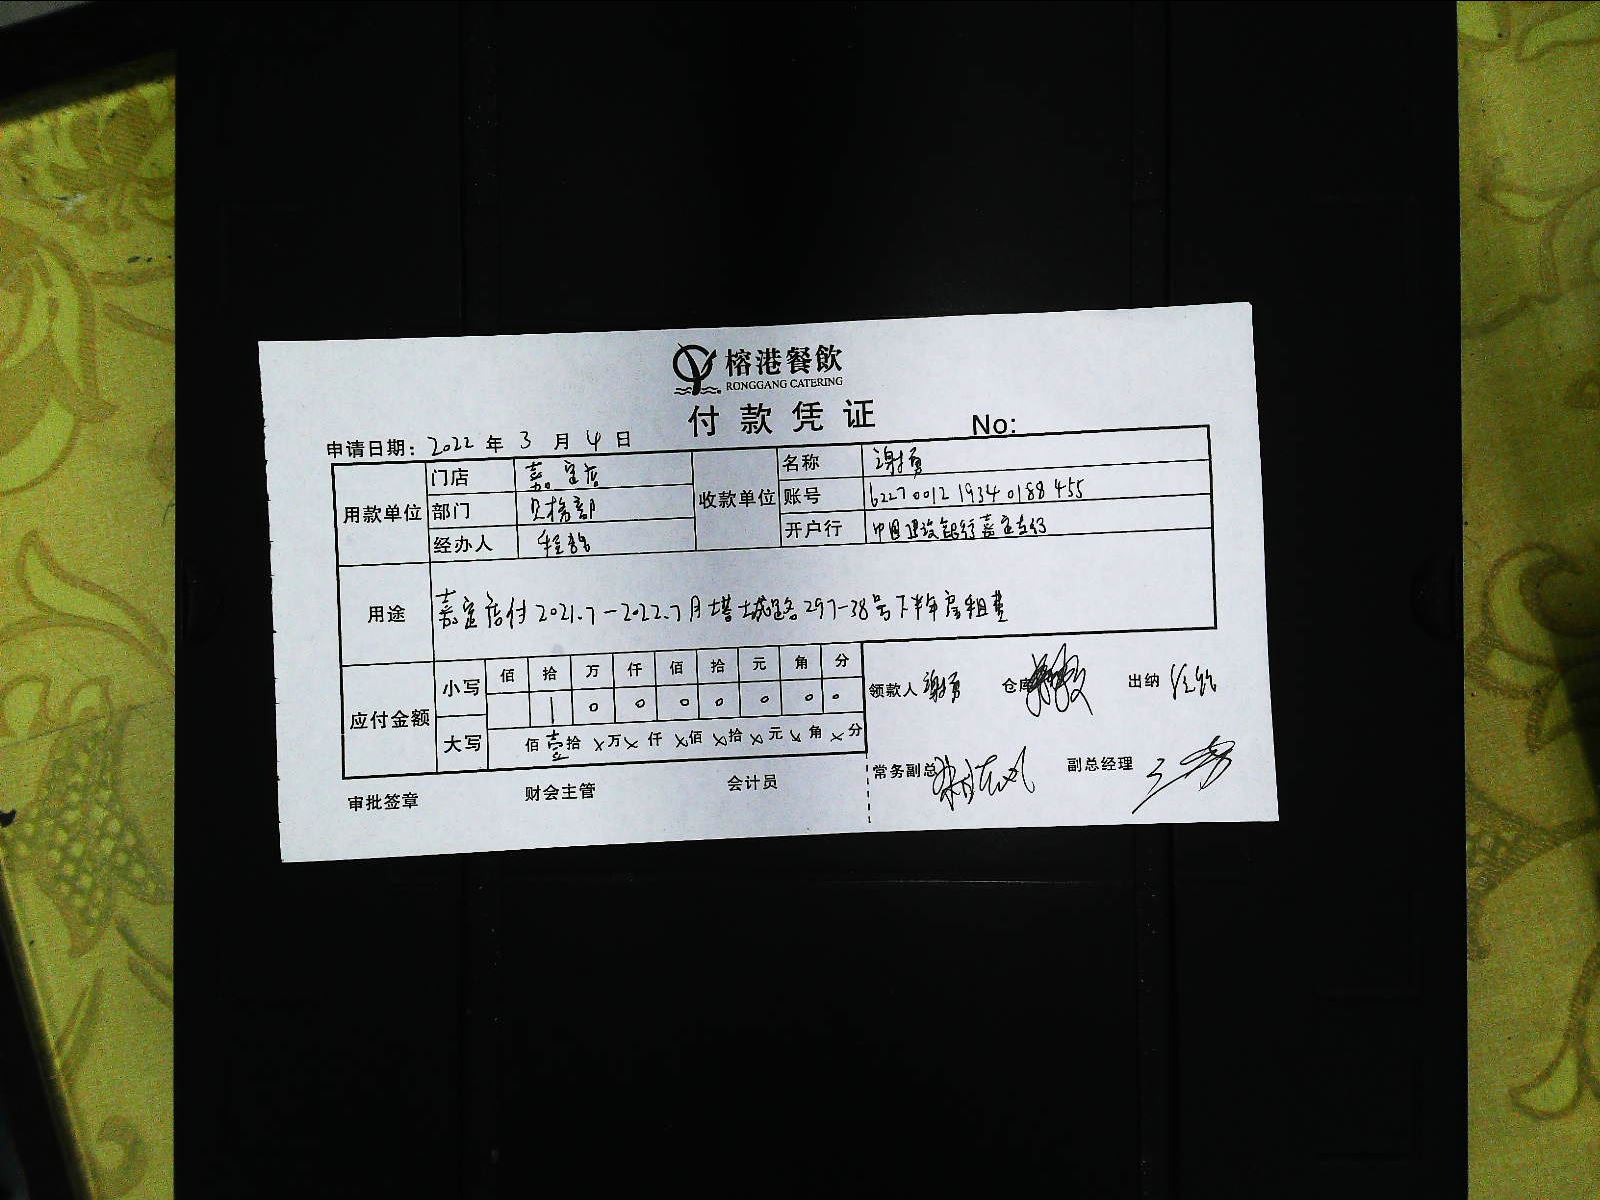 榕港餐飲
RONGGANG CATERING
付款凭证
No:
申请日期：2022年3月4日
用款单位 门店 嘉定店
部门
经办人
收款单位 名称 谢勇
账号 6227 0012 1934 0188 455
开户行 中国建设银行嘉定支行
用途 嘉定店付2021.7-2022.7月塔城路297-38号下半年房租费
应付金额 小写 佰 拾 万 仟 佰 拾 元 角 分
1 0 0 0 0 0 0 0
大写 佰壹拾×万×仟×佰×拾×元×角×分
领款人 谢勇 仓库 出纳
常务副总 副总经理
审批签章 财会主管 会计员